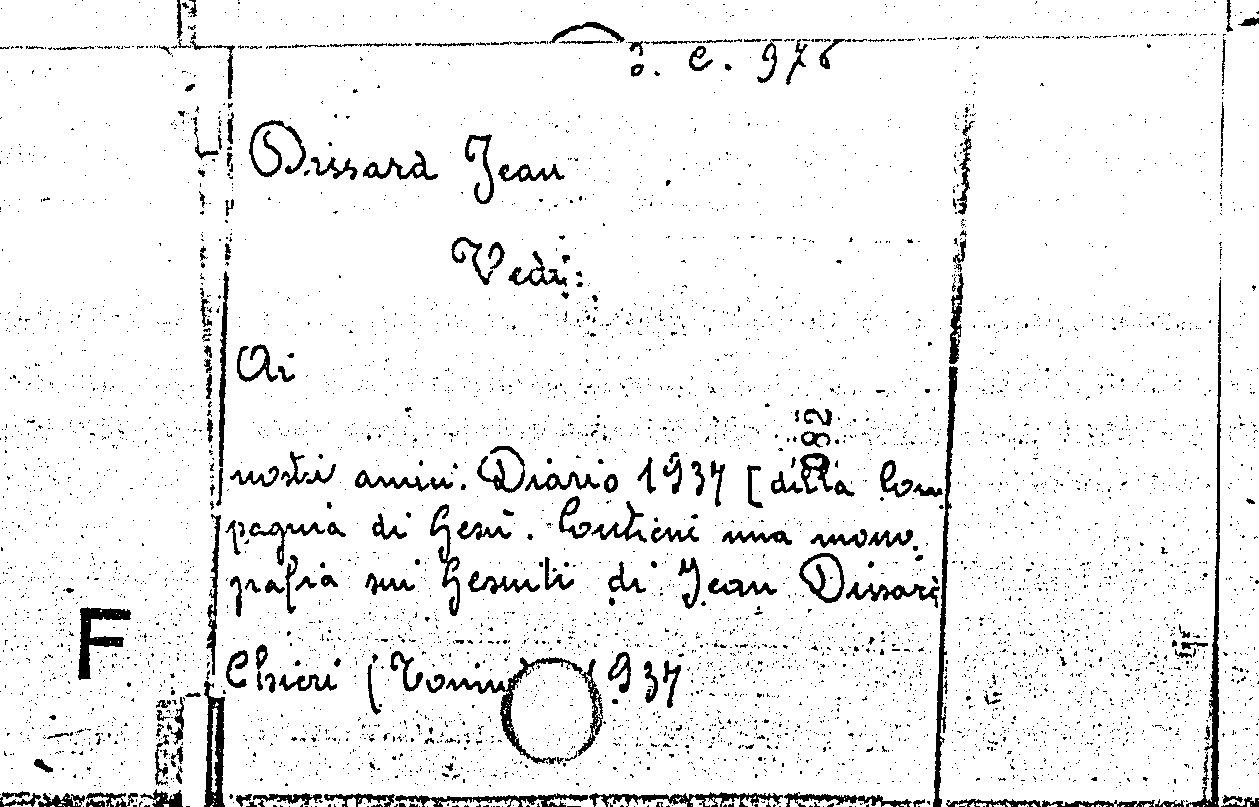 3. C. 976
Dissard Jean
Vedi:
Ai
082
nostri amici. Diario 1937 [della Com
pagnia di Gesù. Contiene una mono.
grafia sui Gesuiti di Jean Dissard
F
Chieri (Torino) 1937